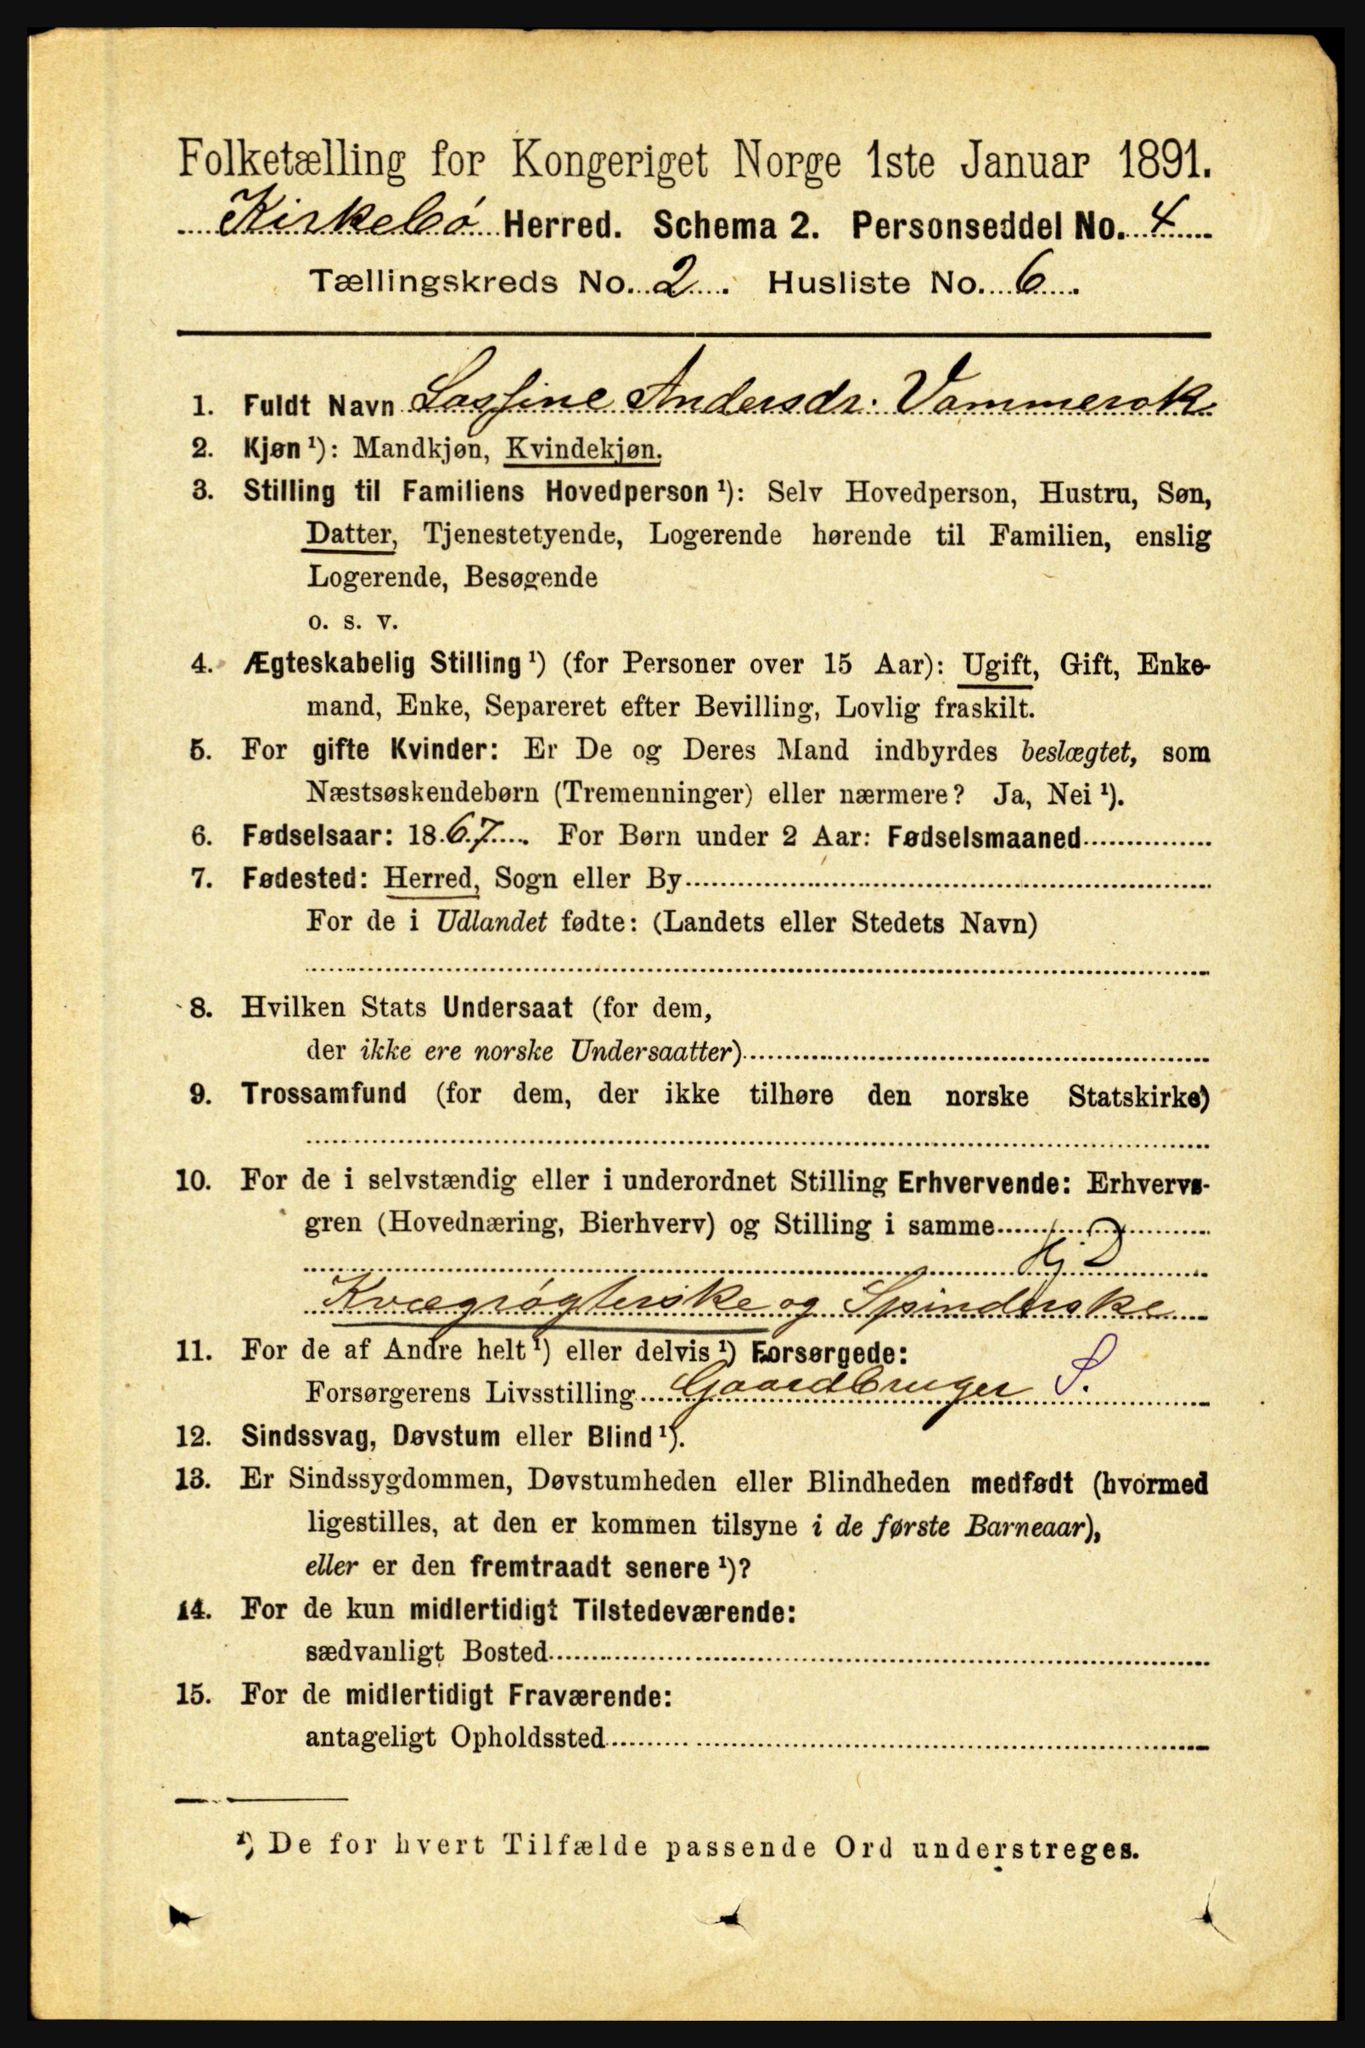 Folketælling for Kongeriget Norge 1ste Januar 1891.
Kirkebø Herred. Schema 2. Personseddel No. 4
Tællingskreds No. 2. Husliste No. 6.
1. Fuldt Navn Losfine Andersdr. Vammersok
2. Kjøn ¹): Mandkjøn, Kvindekjøn.
3. Stilling til Familiens Hovedperson ¹): Selv Hovedperson, Hustru, Søn,
Datter, Tjenestetyende, Logerende hørende til Familien, enslig
Logerende, Besøgende
o. s. v.
4. Ægteskabelig Stilling ¹) (for Personer over 15 Aar): Ugift, Gift, Enke-
mand, Enke, Separeret efter Bevilling, Lovlig fraskilt.
5. For gifte Kvinder: Er De og Deres Mand indbyrdes beslægtet, som
Næstsøskendebørn (Tremenninger) eller nærmere? Ja, Nei ¹).
6. Fødselsaar: 1867. For Børn under 2 Aar: Fødselsmaaned
7. Fødested: Herred, Sogn eller By
For de i Udlandet fødte: (Landets eller Stedets Navn)
8. Hvilken Stats Undersaat (for dem,
der ikke ere norske Undersaatter)
9. Trossamfund (for dem, der ikke tilhøre den norske Statskirke)
10. For de i selvstændig eller i underordnet Stilling Erhvervende: Erhvervs-
gren (Hovednæring, Bierhverv) og Stilling i samme
Hj D
Kvægrøgterske og Spinderske
11. For de af Andre helt ¹) eller delvis ¹) Forsørgede:
Forsørgerens Livsstilling Gaardbruger S.
12. Sindssvag, Døvstum eller Blind ¹).
13. Er Sindssygdommen, Døvstumheden eller Blindheden medfødt (hvormed
ligestilles, at den er kommen tilsyne i de første Barneaar),
eller er den fremtraadt senere ¹)?
14. For de kun midlertidigt Tilstedeværende:
sædvanligt Bosted
15. For de midlertidigt Fraværende:
antageligt Opholdssted
¹) De for hvert Tilfælde passende Ord understreges.